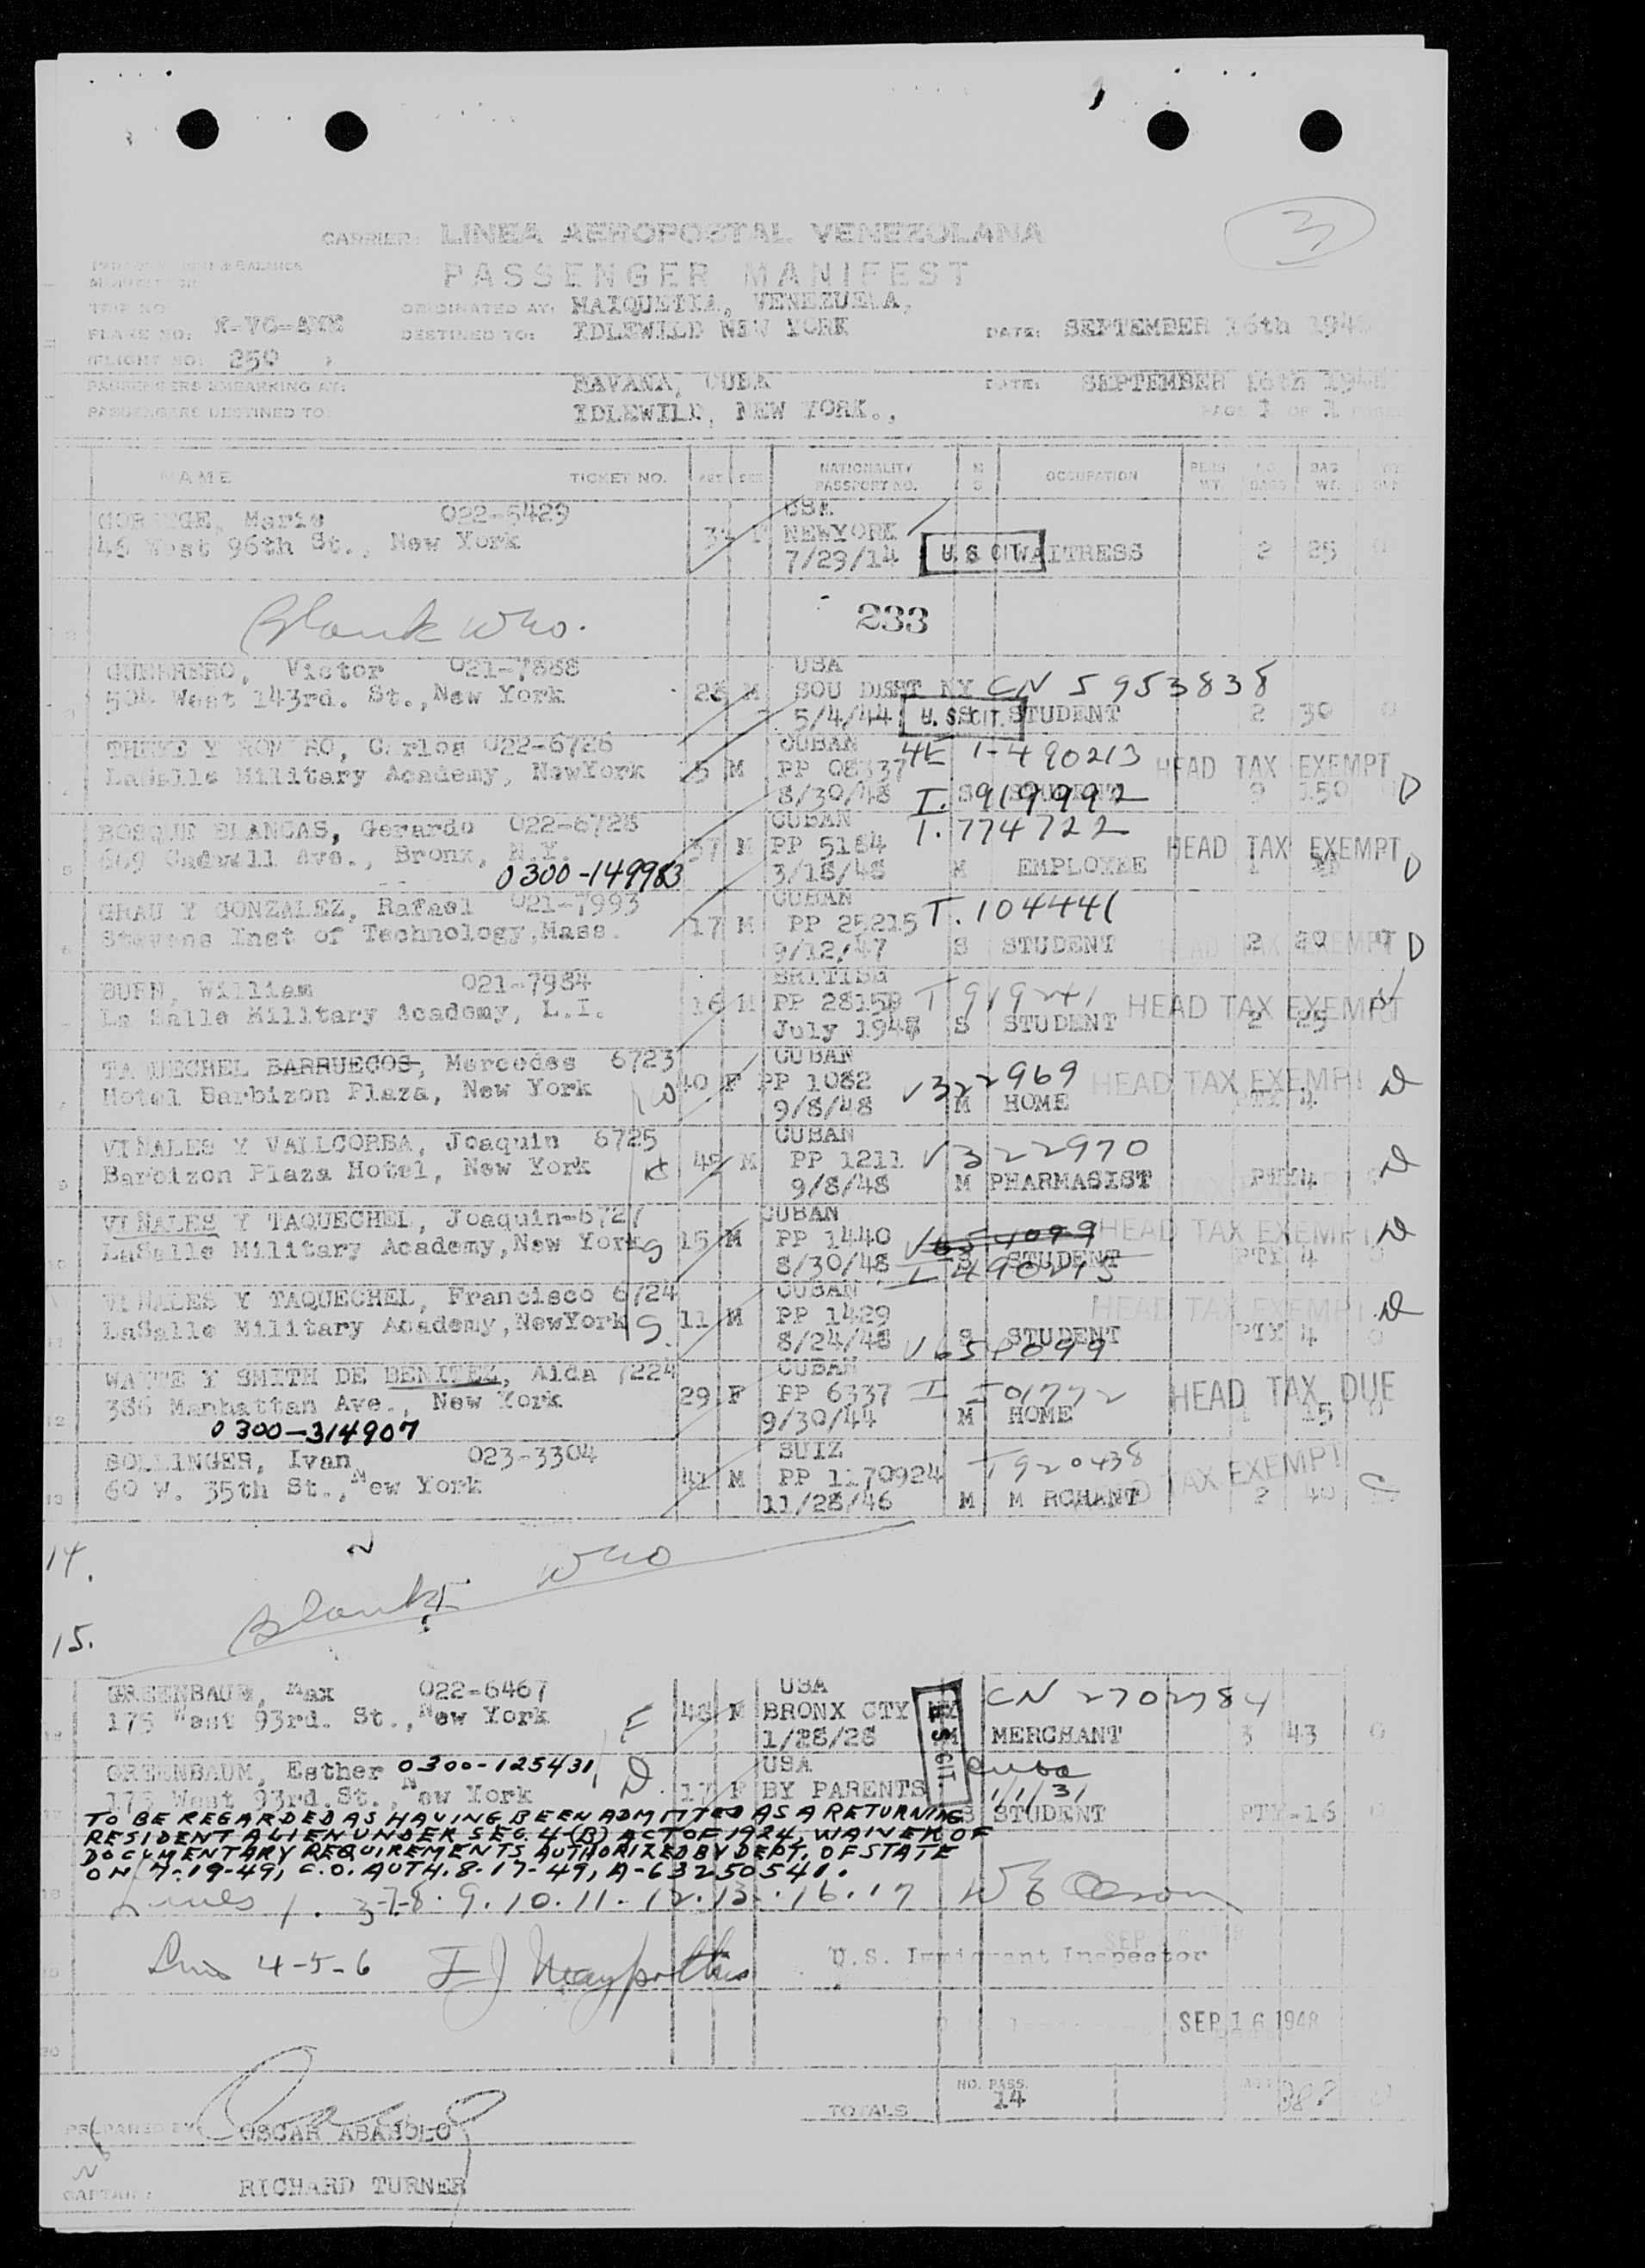 3
CARRIER: LINEA AEROPOSTAL VENEZOLANA
PASSENGER MANIFEST
TRIP NO
ORIGINATED AT: MAIQUETIA, VENEZUELA,
PLANE NO:
DESTINED TO: IDLEWILD NEW YORK
DATE: SEPTEMBER 16th
FLIGHT NO: 250
PASSENGERS EMBARKING AT: HAVANA, CUBA
DATE: SEPTEMBER 16th
PASSENGERS DESTINED TO: IDLEWILD, NEW YORK.,
PAGE 1 OF 1
NAME TICKET NO. AGE SEX NATIONALITY PASSPORT NO. M S OCCUPATION BAG WT.
Marie 022-5429 USA
46 West 96th St., New York 34 F NEWYORK
7/23/14 U.S CIT WAITRESS 2 25 0
Blank WEO. 233
GUERRERO, Victor 021-7888 USA
504 West 143rd. St., New York 28 M SOU DIST NY CN 5953838
5/4/44 U.S. CIT. S STUDENT 2 30 0
Carlos 022-6726 CUBAN 4E I-490213
LaSalle Military Academy, NewYork 15 M PP 08337 HEAD TAX EXEMPT
8/30/48 I. 919992 S STUDENT 150 D
BOSQUE BLANCAS, Gerardo 022-6728 CUBAN T. 774722
Ave., Bronx, N.Y. 37 M PP 5184 HEAD TAX EXEMPT
0300-149983 3/18/48 M EMPLOYEE D
GRAU Y GONZALEZ, Rafael 021-7993 CUBAN T. 104441
Stevens Inst of Technology, Mass. 17 M PP 25215
9/12/47 S STUDENT HEAD TAX EXEMPT 2 D
BURN, William 021-7984 BRITISH
La Salle Military Academy, L.I. 16 M PP 28159 T 919241 HEAD TAX EXEMPT
July 1948 S STUDENT 2 25
TAQUECHEL BARRUECOS, Mercedes 6723 CUBAN
Hotel Barbizon Plaza, New York W 40 F PP 1082 V322969 HEAD TAX EXEMPT
9/8/48 M HOME PTY 4 D
VIÑALES Y VALLCORBA, Joaquin 6725 CUBAN
Barbizon Plaza Hotel, New York H PP 1211 V322970
9/8/48 M PHARMASIST PTY 4 D
VIÑALES Y TAQUECHEL, Joaquin-6727 CUBAN
LaSalle Military Academy, New York S 15 M PP 1440 HEAD TAX EXEMPT D
8/30/48 S STUDENT PTY 4 0
VIÑALES Y TAQUECHEL, Francisco 6724 CUBAN
LaSalle Military Academy, NewYork S. 11 M PP 1429 HEAD TAX EXEMPT D
8/24/48 S STUDENT PTY 4 0
Y SMITH DE BENITEZ, Aida 7224 CUBAN
Manhattan Ave., New York 29 F PP 6337 HEAD TAX DUE
0300-314907 9/30/44 M HOME 15 0
BOLLINGER, Ivan 023-3304 SUIZ
60 W. 35th St., New York 41 M PP 1170924 T920438 HEAD TAX EXEMPT
11/28/46 M M RCHANT 2 40
14.
Blank WEO
15.
GREENBAUM, Max 022-6467 USA
175 West 93rd. St., New York 48 M BRONX CTY NY CN 2702784
1/28/28 M U.S.CIT. MERCHANT 3 43 0
GREENBAUM, Esther 0300-125431 USA Cuba
175 West 93rd. St., New York 17 F BY PARENTS 1/1/31
S STUDENT PTY-16 0
TO BE REGARDED AS HAVING BEEN ADMITTED AS A RETURNING
RESIDENT ALIEN UNDER SEC. 4-(B) ACT OF 1924, WAIVER OF
DOCUMENTARY REQUIREMENTS AUTHORIZED BY DEPT. OF STATE
ON 7-19-49, C.O. AUTH. 8-17-49, A-6325054 1.
Lines 1. 3-7-8. 9. 10. 11. 12. 13. 16. 17
Lines 4-5-6
U.S. Immigrant Inspector
SEP 16 1948
NO. PASS.
TOTALS 14
PREPARED BY:
RICHARD TURNER
CAPTAIN: